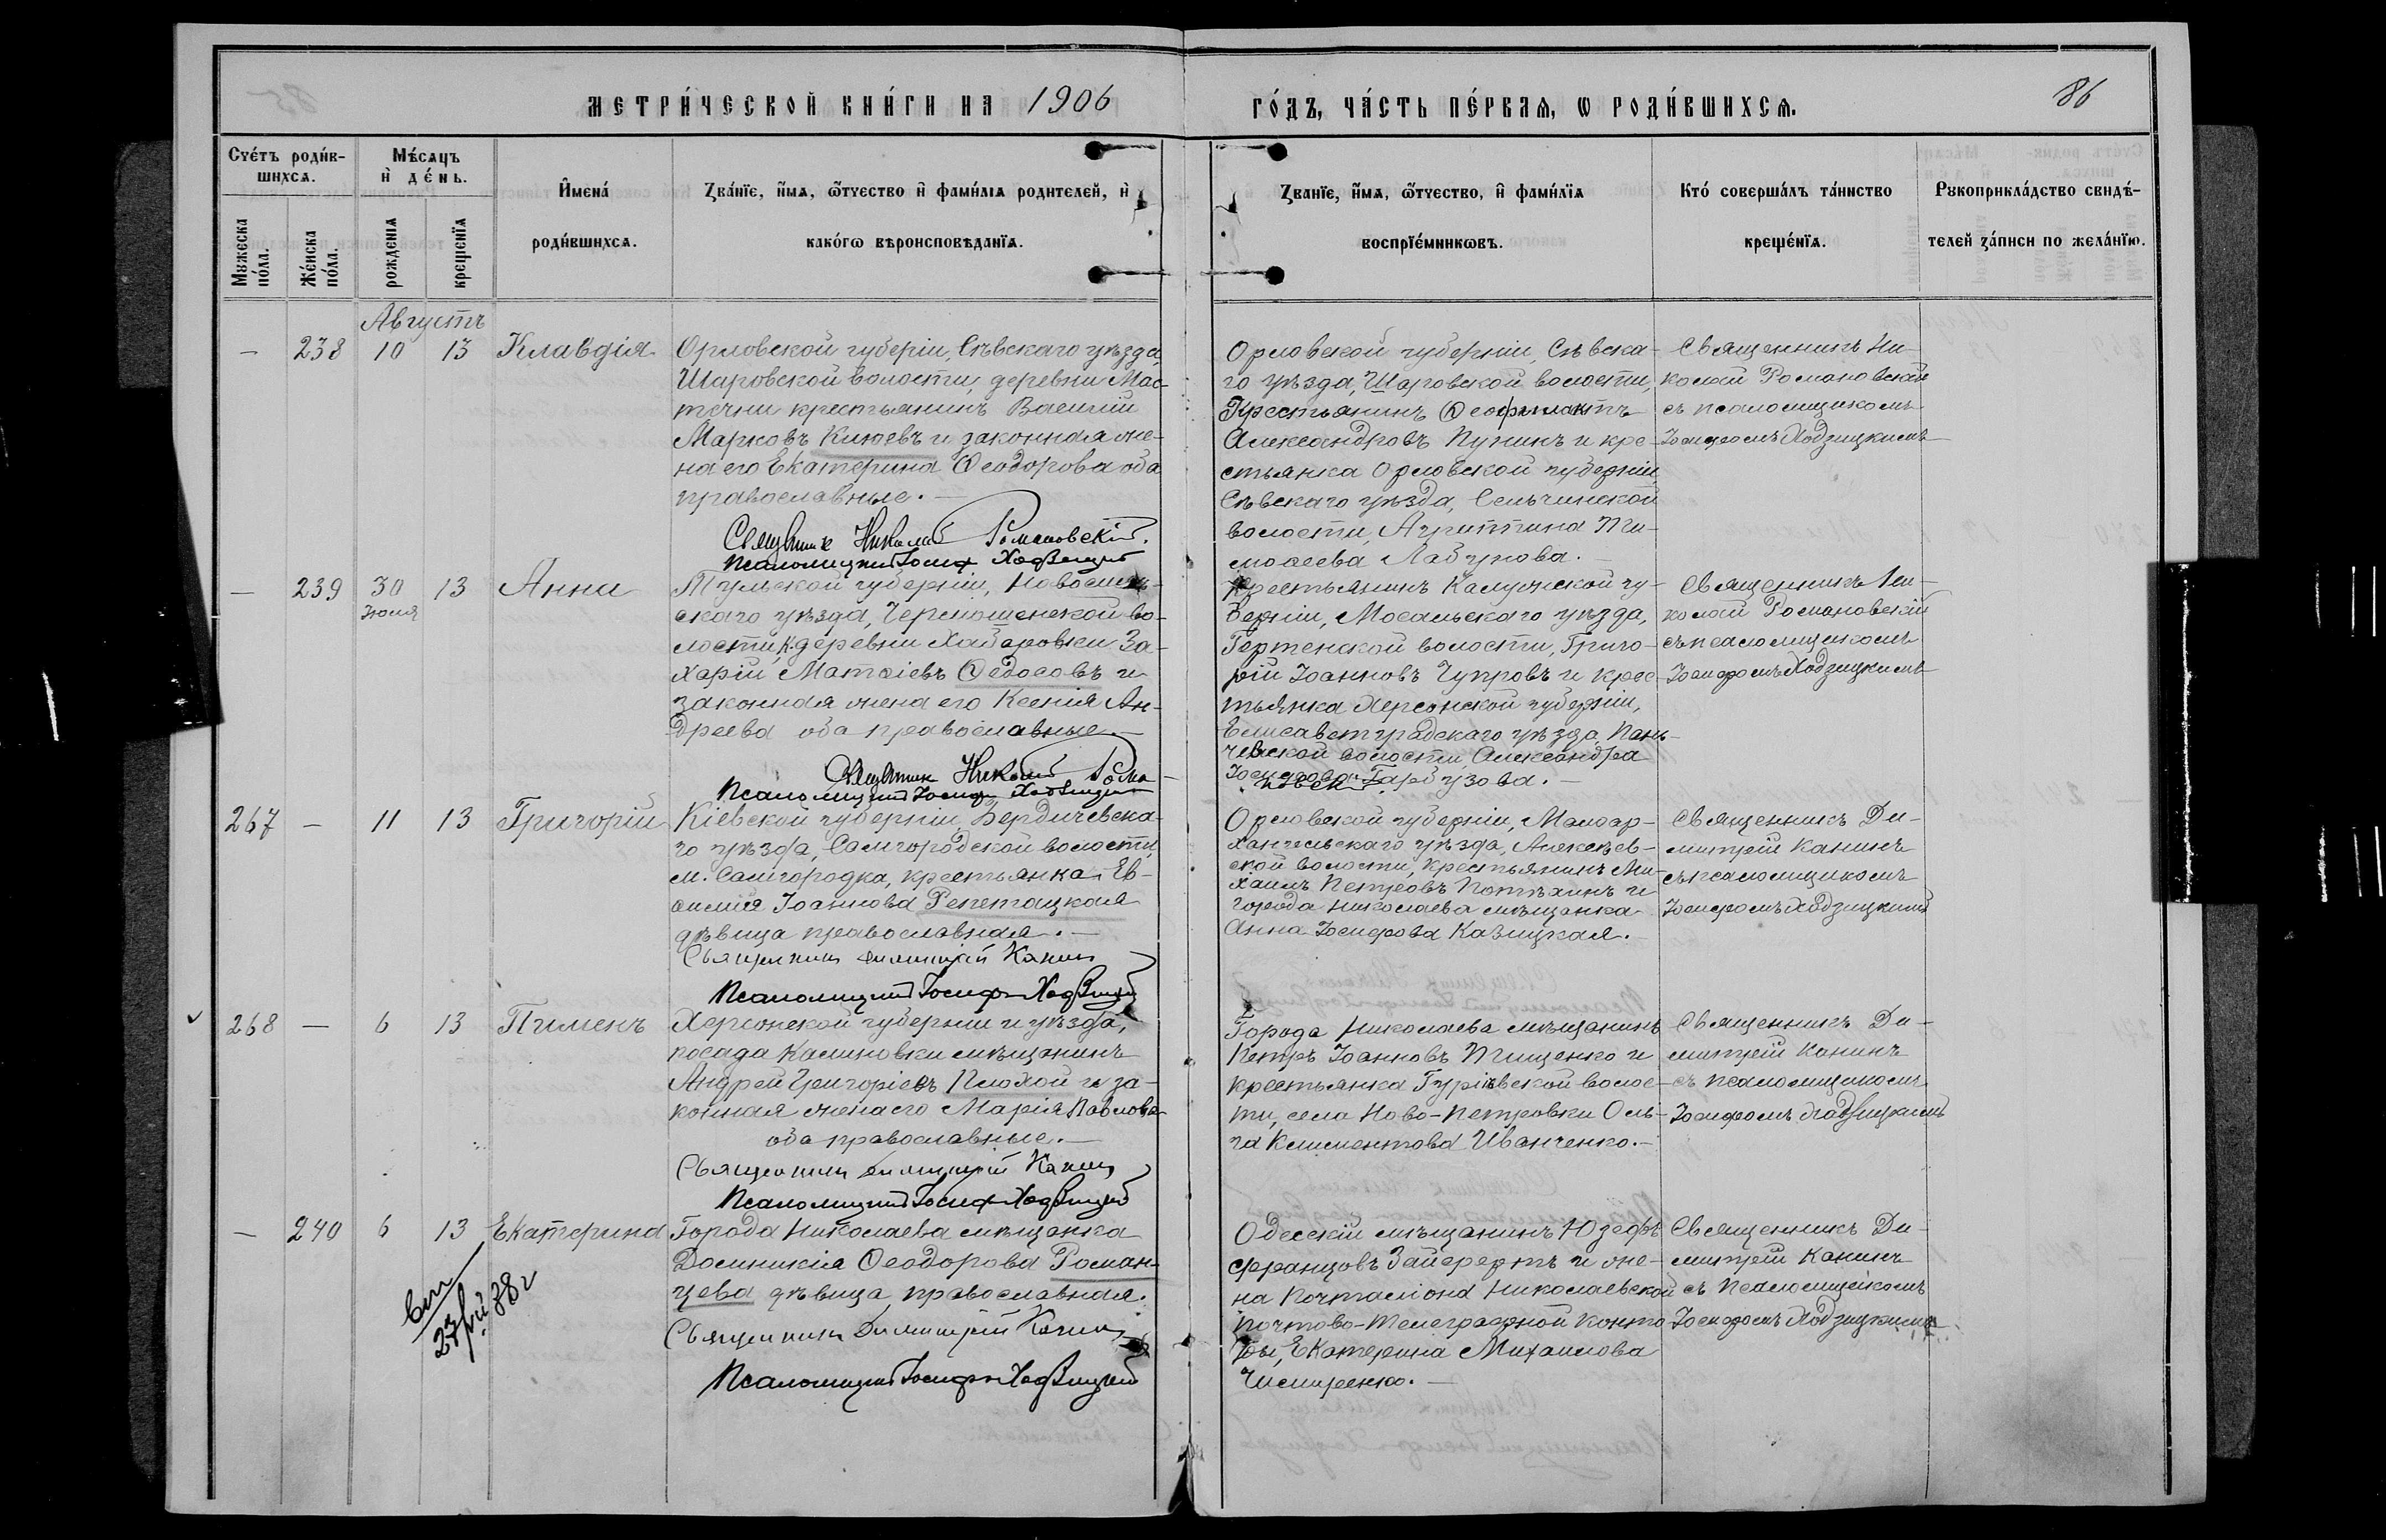 МЕТРИ́ЧЕСКОЙ КНИ́ГИ НА 1906
ГО́ДЪ, ЧА́СТЬ ПЕ́РВАЯ, Ѡ РОДИ́ВШИХСЯ.
86
Счетъ роди́в-
шихся.
Мѣсяцъ
и де́нь.
Мужеска
по́ла.
Же́нска
по́ла.
рожденїя
крещенїя
Имена́
роди́вшихся.
Зва́нїе, и́мя, ѻтчество и фами́лїя родителей, и
како́гѡ вѣроисповѣданїя.
Званїе, и́мя, ѻтчество, и фами́лїя
воспрїе́мникѡвъ.
Кто́ соверша́лъ та́инство
креще́нїя.
Рукоприкла́дство свидѣ́-
телей за́писи по жела́нїю.
Августъ
— 238 10 13 Клавдія
Орловской губеріи, Сѣвскаго уѣзда,
Шаровской волости, деревни Мас-
течни крестьянинъ Василій
Марковъ Князевъ и законная же-
на его Екатерина Ѳеодорова оба
православные. —
Священник Николай Романовскій.
Псаломщикъ Іосиф Ходзицкій
Орловской губерніи, Сѣвска-
го уѣзда, Шаровской волости,
Крестьянинъ Ѳеофилактъ
Александровъ Пунинъ и кре-
стьянка Орловской губерніи
Сѣвскаго уѣзда, Сельчинской
волости, Агриппина Ти-
моѳеева Лабунова.
Священникъ Ни-
колай Романовскій
съ псаломщикомъ
Іосифомъ Ходзицкимъ
— 239 30 13 Анна
Іюля
Тульской губерніи, Новосиль-
скаго уѣзда, Чермошенской во-
лости, деревни Хабаровки За-
харій Матѳіевъ Ѳедосовъ и
законная жена его Ксенія Ан-
дреева оба православные. —
Священник Николай Рома-
новскій.
Псаломщикъ Іосиф Ходзицкій
Крестьянинъ Калужской гу-
берніи, Мосальскаго уѣзда,
Гертенской волости, Григо-
рій Іоанновъ Чупровъ и крес-
тьянка Херсонской губерніи,
Елисаветградскаго уѣзда, Пан-
чевской волости, Александра
Іосифова Гарбузова. —
Священникъ Ни-
колай Романовскій
съ псаломщикомъ
Іосифомъ Ходзицкимъ
267 — 11 13 Григорій
Кіевской губерніи, Бердичевска-
го уѣзда, Самгородской волости,
м. Самгородка, крестьянка Ев-
ѳимія Іоаннова Репетацкая
дѣвица православная. —
Священникъ Димитрій Канинъ
Псаломщикъ Іосифъ Ходзицкій
Орловской губерніи, Малоар-
хангельскаго уѣзда, Алексѣев-
ской волости, крестьянинъ Ми-
хаилъ Петровъ Потѣхинъ и
города Николаева мѣщанка
Анна Іосифова Кавицкая.
Священникъ Ди-
митрій Канинъ
съ псаломщикомъ
Іосифомъ Ходзицкимъ
268 — 6 13 Пименъ
Херсонской губерніи и уѣзда,
посада Калиновки мѣщанинъ
Андрей Григоріевъ Плохой и за-
конная жена его Марія Павлова
оба православные. —
Священникъ Димитрій Канинъ
Псаломщикъ Іосифъ Ходзицкій
Города Николаева мѣщанинъ
Петръ Іоанновъ Тищенко и
крестьянка Гуріевской волос-
ти, села Ново-Петровки Оль-
га Климентова Иванченко. —
Священникъ Ди-
митрій Канинъ
съ псаломщикомъ
Іосифомъ Ходзицкимъ
— 240 6 13 Екатерина
Города Николаева мѣщанка
Домникія Ѳеодорова Роман-
цева дѣвица православная.
Священникъ Димитрій Канинъ
Псаломщикъ Іосифъ Ходзицкій
Одесскій мѣщанинъ Юзефъ
Францовъ Зайфертъ и же-
на почталіона Николаевской
почтово-телеграфной конто-
ры, Екатерина Михаилова
Чемиренко. —
Священникъ Ди-
митрій Канинъ
съ псаломщикомъ
Іосифомъ Ходзицкимъ